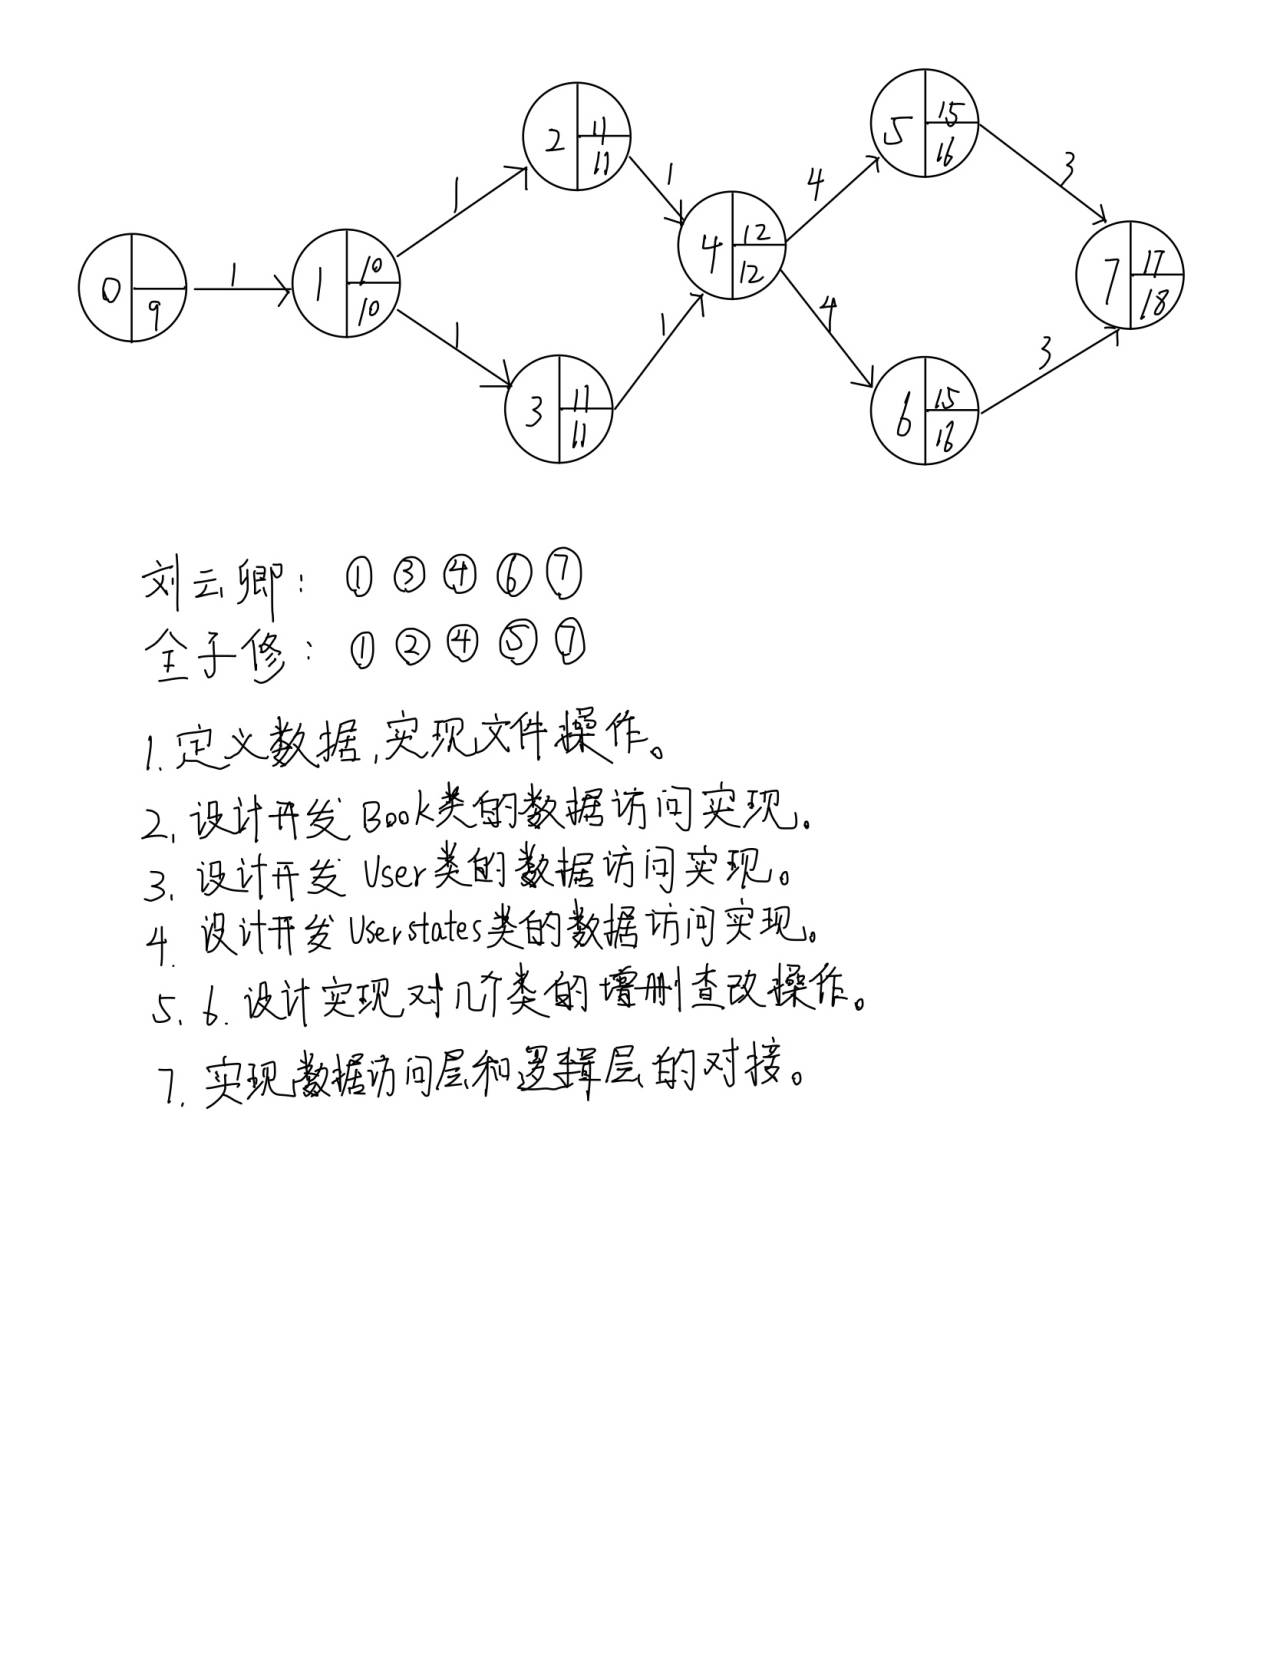 0 9
1
1 10 10
1
2 11 11
1
1
3 11 11
1
4 12 12
4
5 15 16
3
4
6 15 16
3
7 17 18
刘云卿: ① ③ ④ ⑥ ⑦
全子修: ① ② ④ ⑤ ⑦
1.定义数据,实现文件操作。
2.设计开发Book类的数据访问实现。
3.设计开发User类的数据访问实现。
4.设计开发Userstates类的数据访问实现。
5.6.设计实现对几个类的增删查改操作。
7.实现数据访问层和逻辑层的对接。